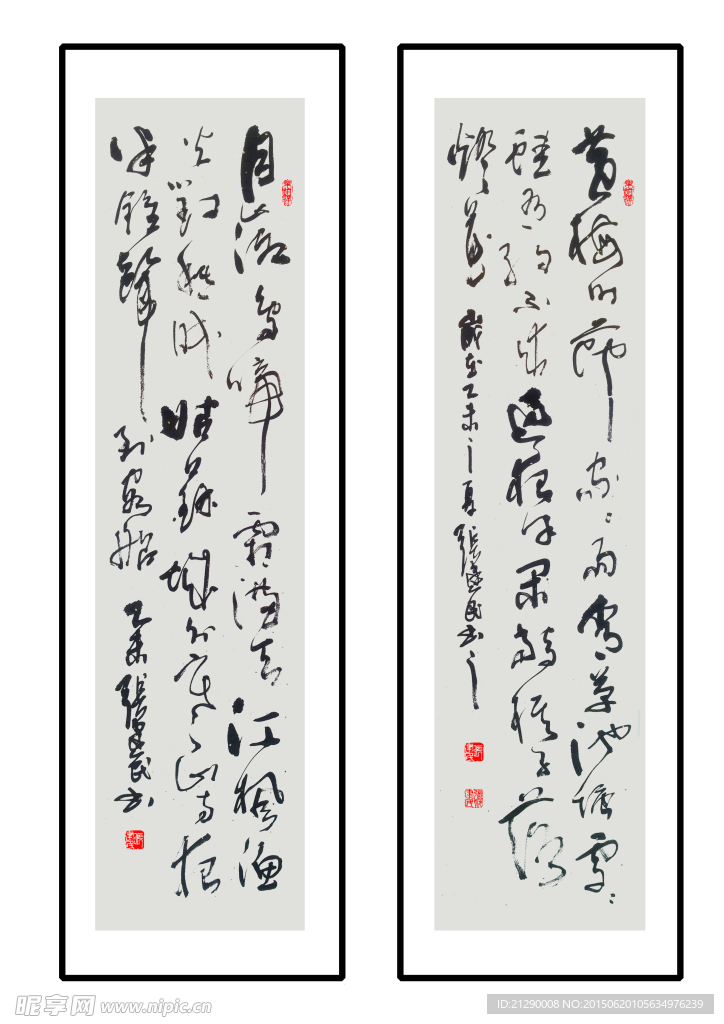 黄梅时节家家雨青草池塘处处
蛙有约不来过夜半闲敲棋子落
灯花
岁在乙未之夏张建民书之
月落乌啼霜满天江枫渔
火对愁眠姑苏城外寒山寺夜
半钟声到客船
乙未张建民书
昵享网 www.nipic.cn
ID:21290008 NO:20150620105634976239